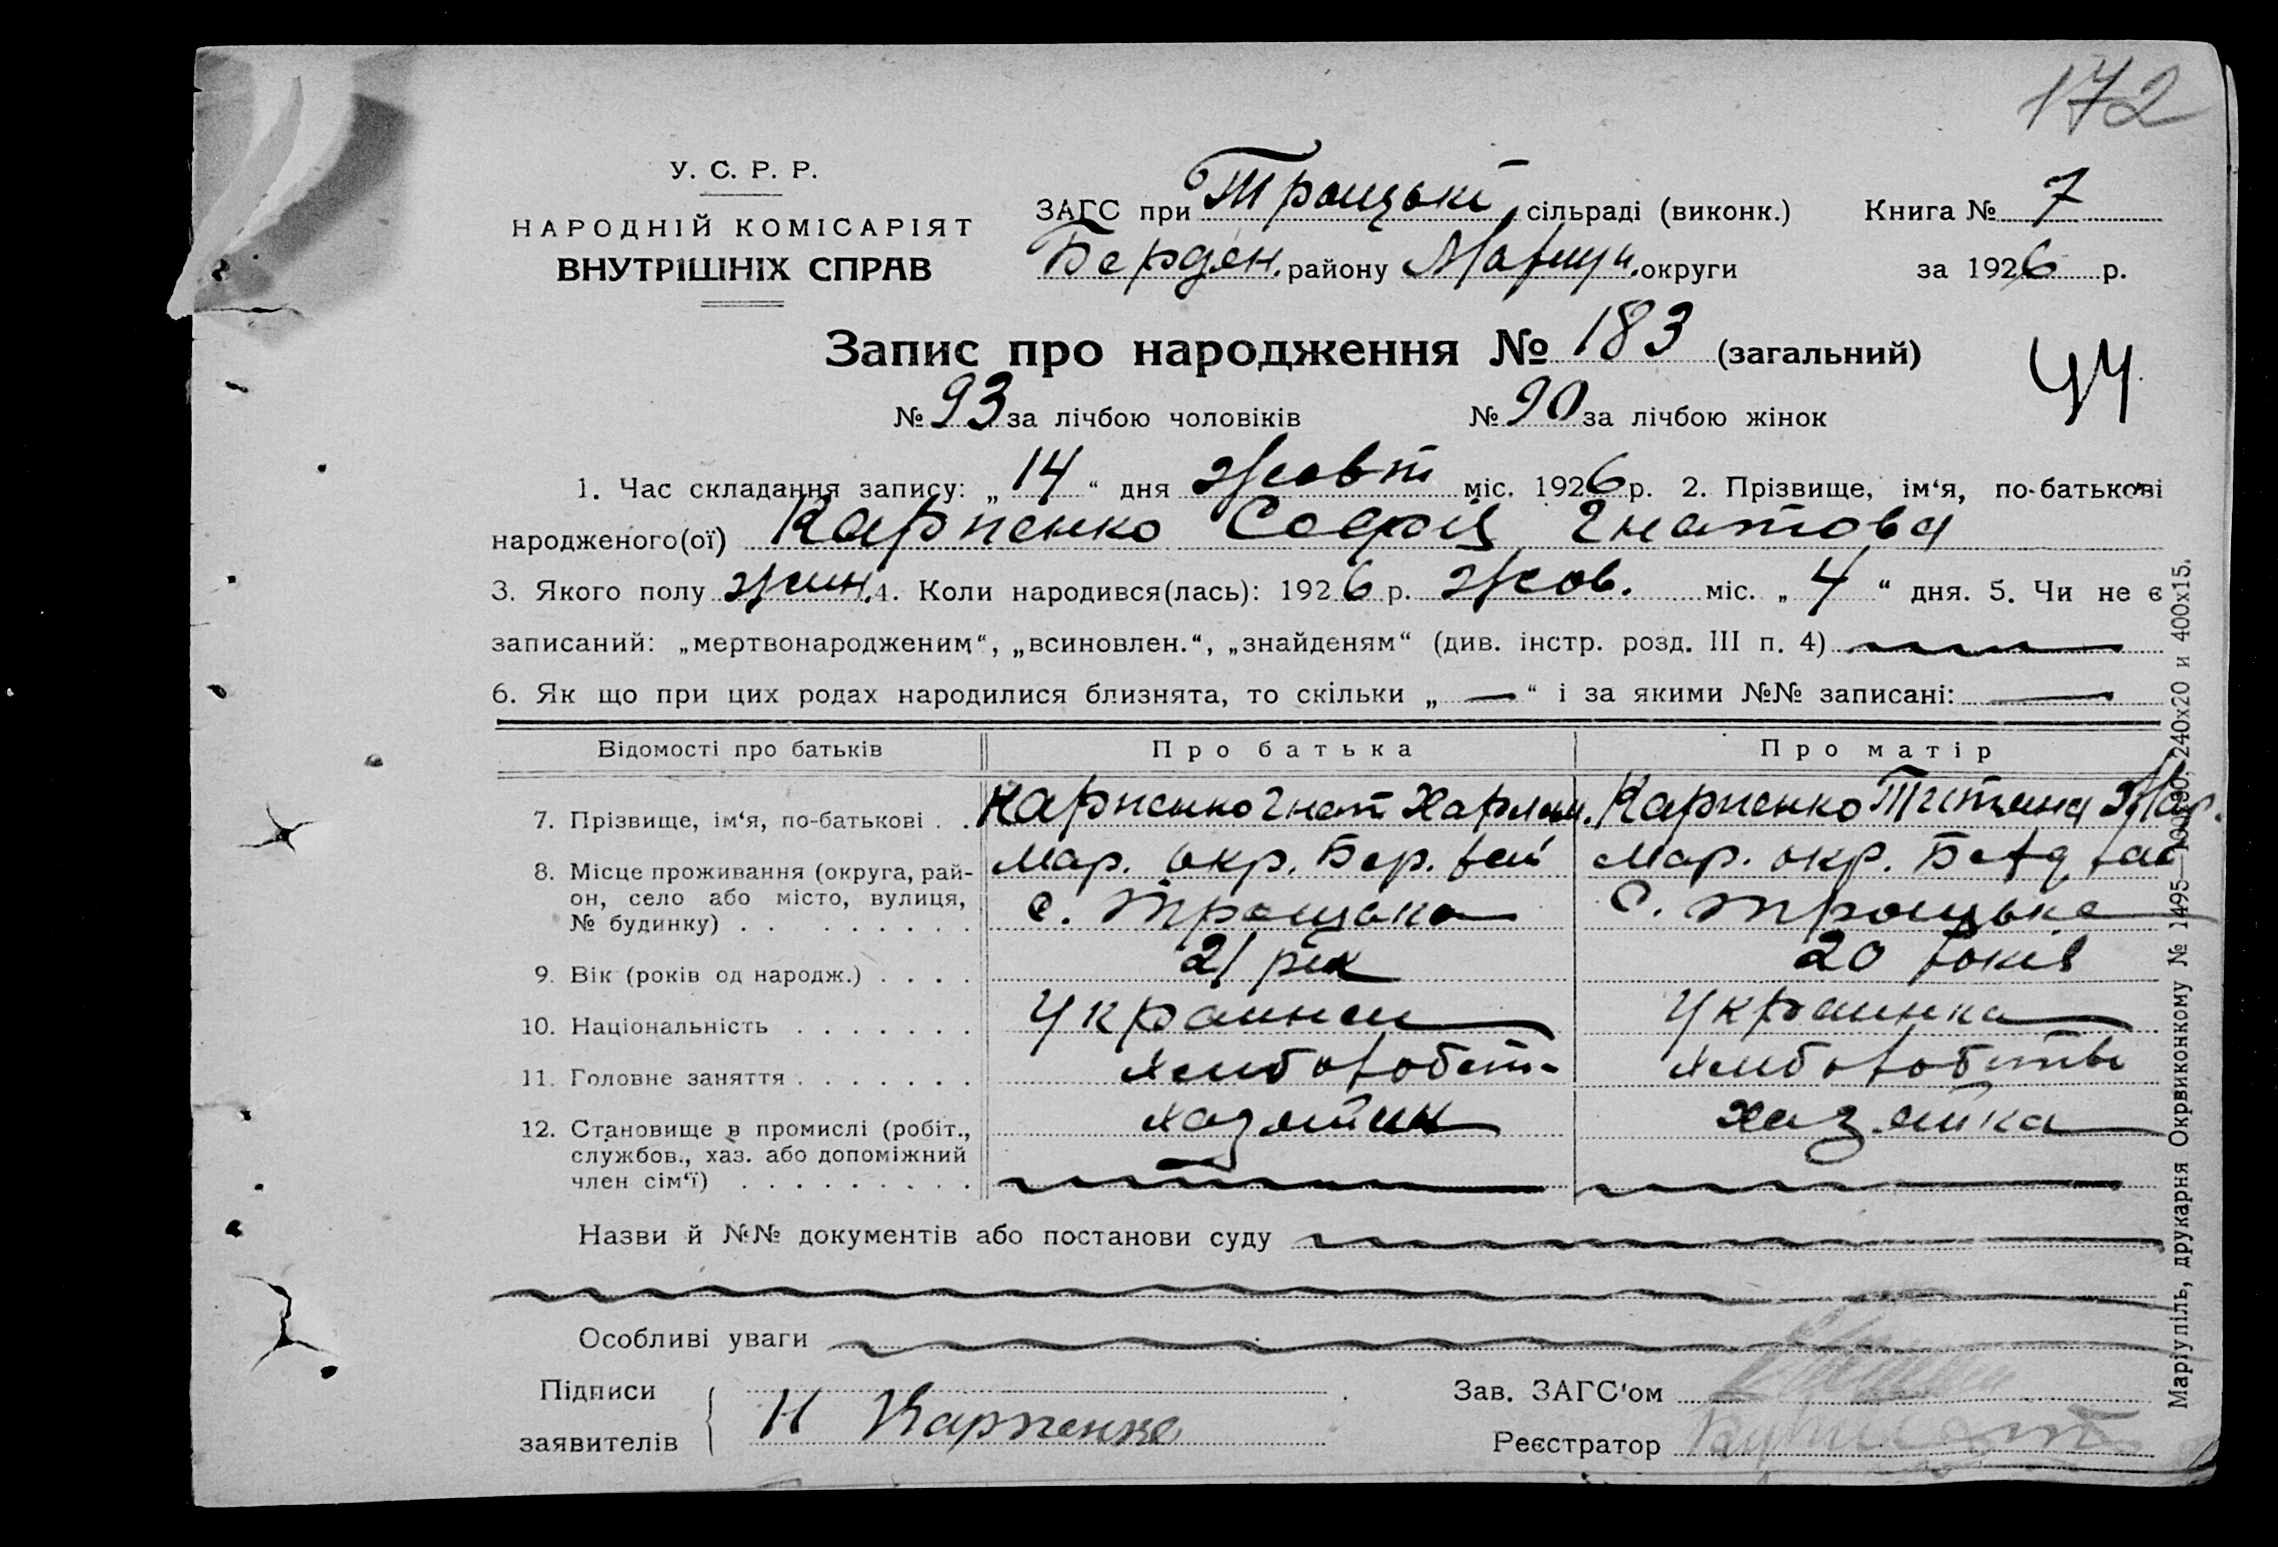 172
У. С. Р. Р.
НАРОДНІЙ КОМІСАРІЯТ
ВНУТРІШНІХ СПРАВ
ЗАГС при Троцькі сільраді (виконк.) Книга № 7
Бердян. району Маріуп. округи за 1926 р.
Запис про народження № 183 (загальний)
44
№ 93 за лічбою чоловіків № 90 за лічбою жінок
1. Час складання запису: „ 14 “ дня Жовт міс. 1926 р. 2. Прізвище, ім‘я, по-батькові
народженого(ої) Карпенко Софія Гнатова
3. Якого полу жин. 4. Коли народився(лась): 1926 р. Жов. міс. „ 4 “ дня. 5. Чи не є
записаний: „мертвонародженим“, „всиновлен.“, „знайденям“ (див. інстр. розд. III п. 4)
6. Як що при цих родах народилися близнята, то скільки „ — “ і за якими №№ записані: —
Відомості про батьків Про батька Про матір
7. Прізвище, ім‘я, по-батькові . . Карпенко Гнат Харлам. Карпенко Титяна
8. Місце проживання (округа, рай- Мар. окр. Бер. рай Мар. окр. Берд рай
он, село або місто, вулиця, с. Троцько с. Троцьке
№ будинку) . . . . . . . .
9. Вік (років од народж.) . . . . 21 рік 20 років
10. Національність . . . . . . . Украинец Украинка
11. Головне заняття . . . . . . . хлиборобст. хлиборобство
12. Становище в промислі (робіт., хазяйин хазяйка
службов., хаз. або допоміжний
член сім‘ї) . . . . . . . . .
Назви й №№ документів або постанови суду
Особливі уваги
Підписи Зав. ЗАГС‘ом
заявителів Н Карпенко Реєстратор
Маріупіль, друкарня Окрвиконкому № 1495— 240х20 и 400х15.